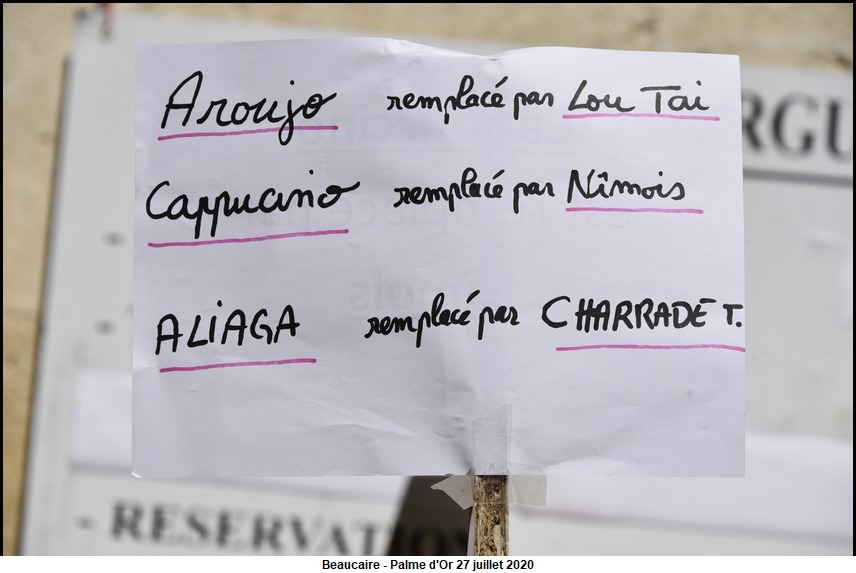 Aroujo remplacé par Lou Tai
RGU
Cappucino remplacé par Nîmois
ALIAGA remplacé par CHARRADE T.
- RESERVATIO
Beaucaire - Palme d'Or 27 juillet 2020